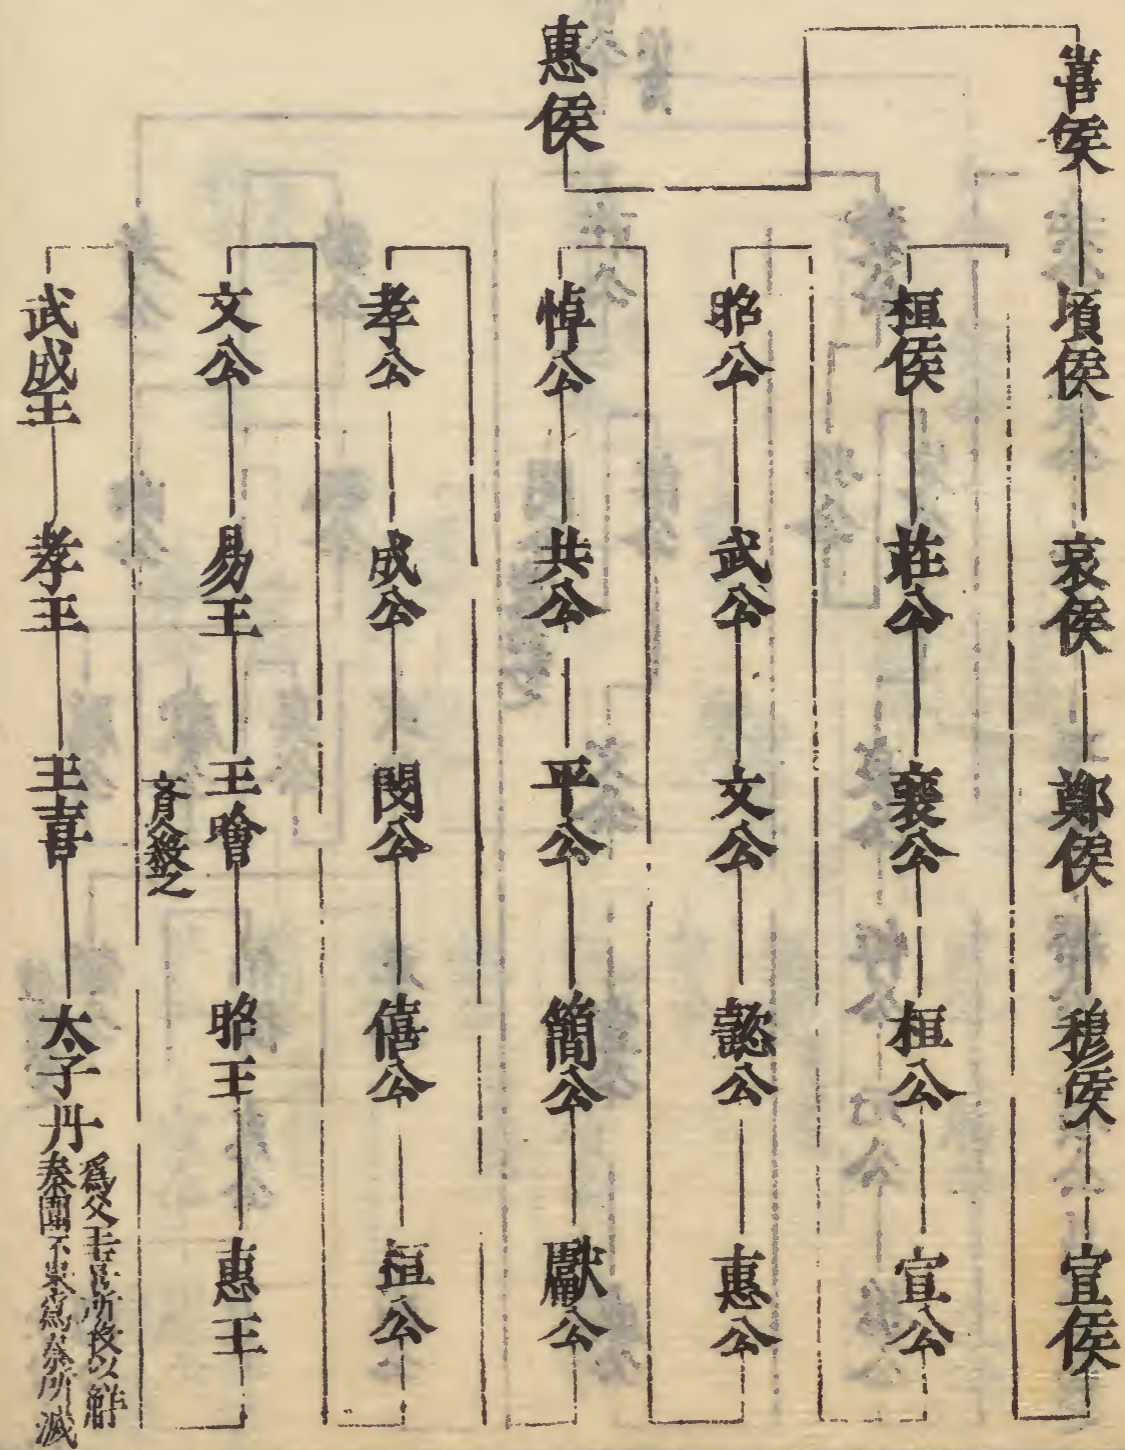 惠侯
喜侯
頃侯
哀侯
鄭侯
穆侯
宣侯
桓侯
莊公
襄公
桓公
宣公
昭公
武公
文公
懿公
惠公
悼公
共公
平公
簡公
獻公
孝公
成公
閔公
僖公
桓公
文公
易王
王噲
齊人殺之
昭王
惠王
武成王
孝王
王喜
太子丹
爲父王喜所殺以解
秦圍不果爲秦所滅